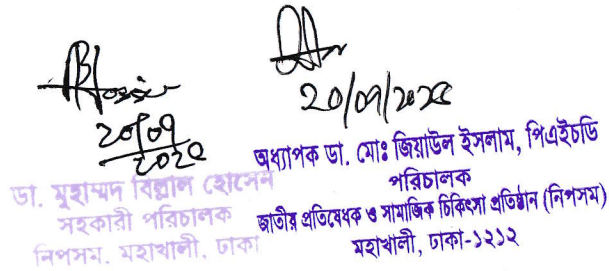 20/07
2025
ডা. মুহাম্মদ বিল্লাল হোসেন
সহকারী পরিচালক
নিপসম, মহাখালী, ঢাকা
20/07/2025
অধ্যাপক ডা. মোঃ জিয়াউল ইসলাম, পিএইচডি
পরিচালক
জাতীয় প্রতিষেধক ও সামাজিক চিকিৎসা প্রতিষ্ঠান (নিপসম)
মহাখালী, ঢাকা-১২১২